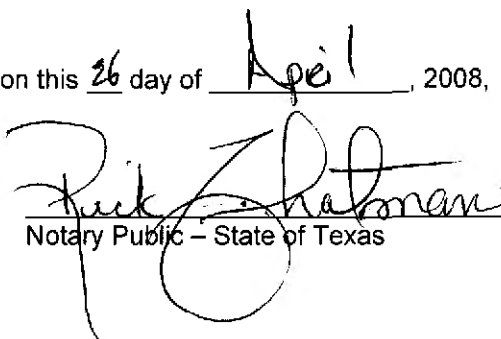 on this 26 day of April, 2008,
Rick Shatman
Notary Public – State of Texas